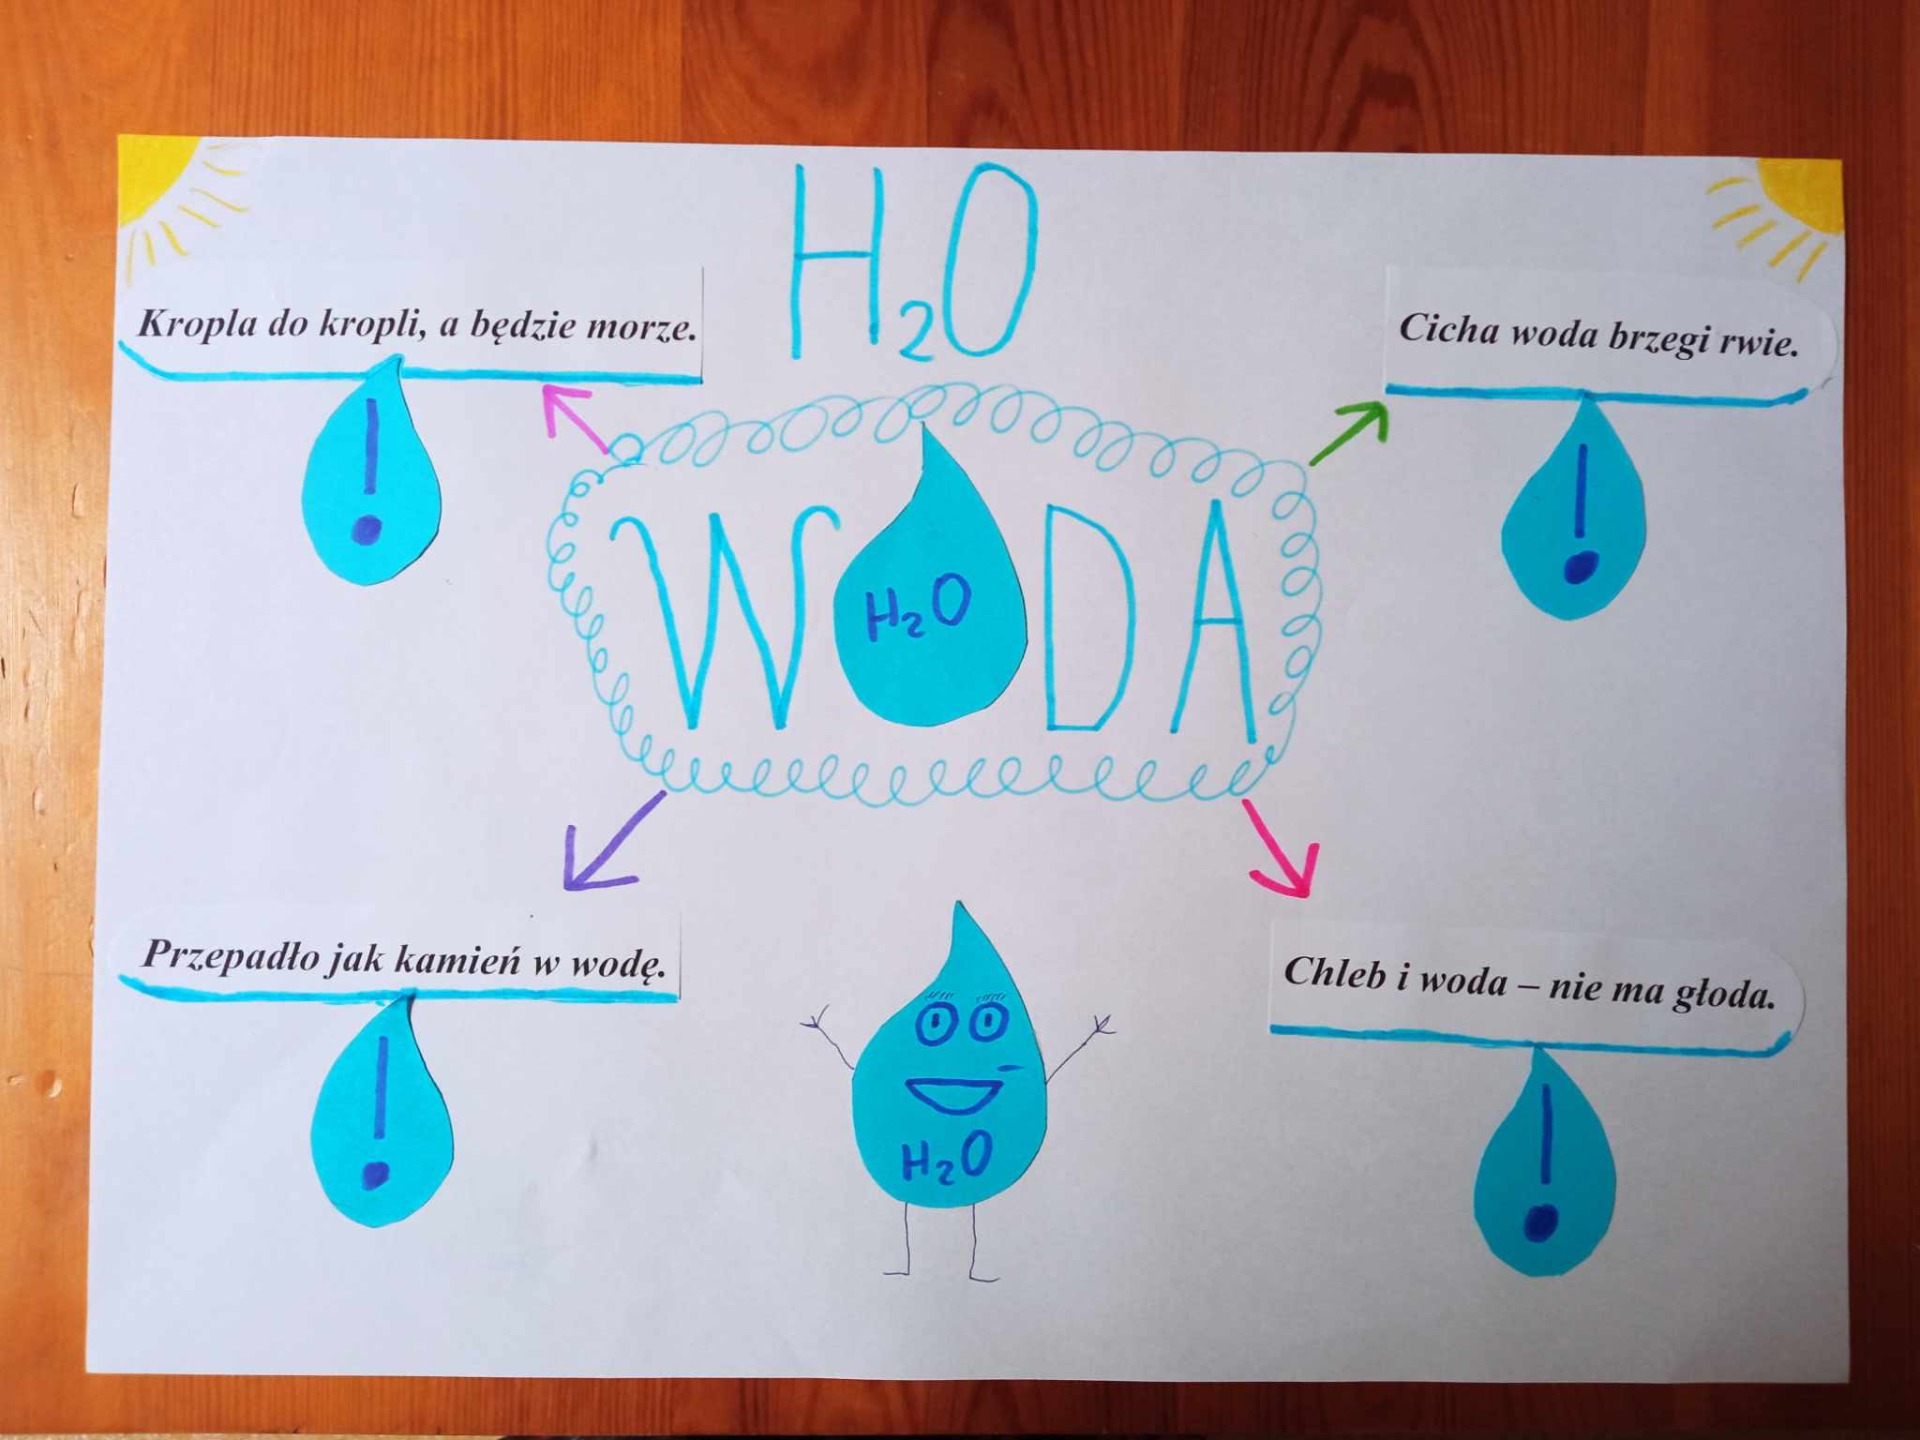 H₂O
Kropla do kropli, a będzie morze.
Cicha woda brzegi rwie.
!
!
WODA
H₂O
Przepadło jak kamień w wodę.
Chleb i woda – nie ma głoda.
!
!
H₂O